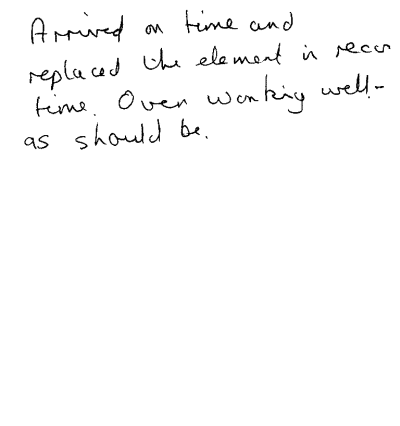 Arrived on time and
replaced the element in recor
time. Oven working well -
as should be.